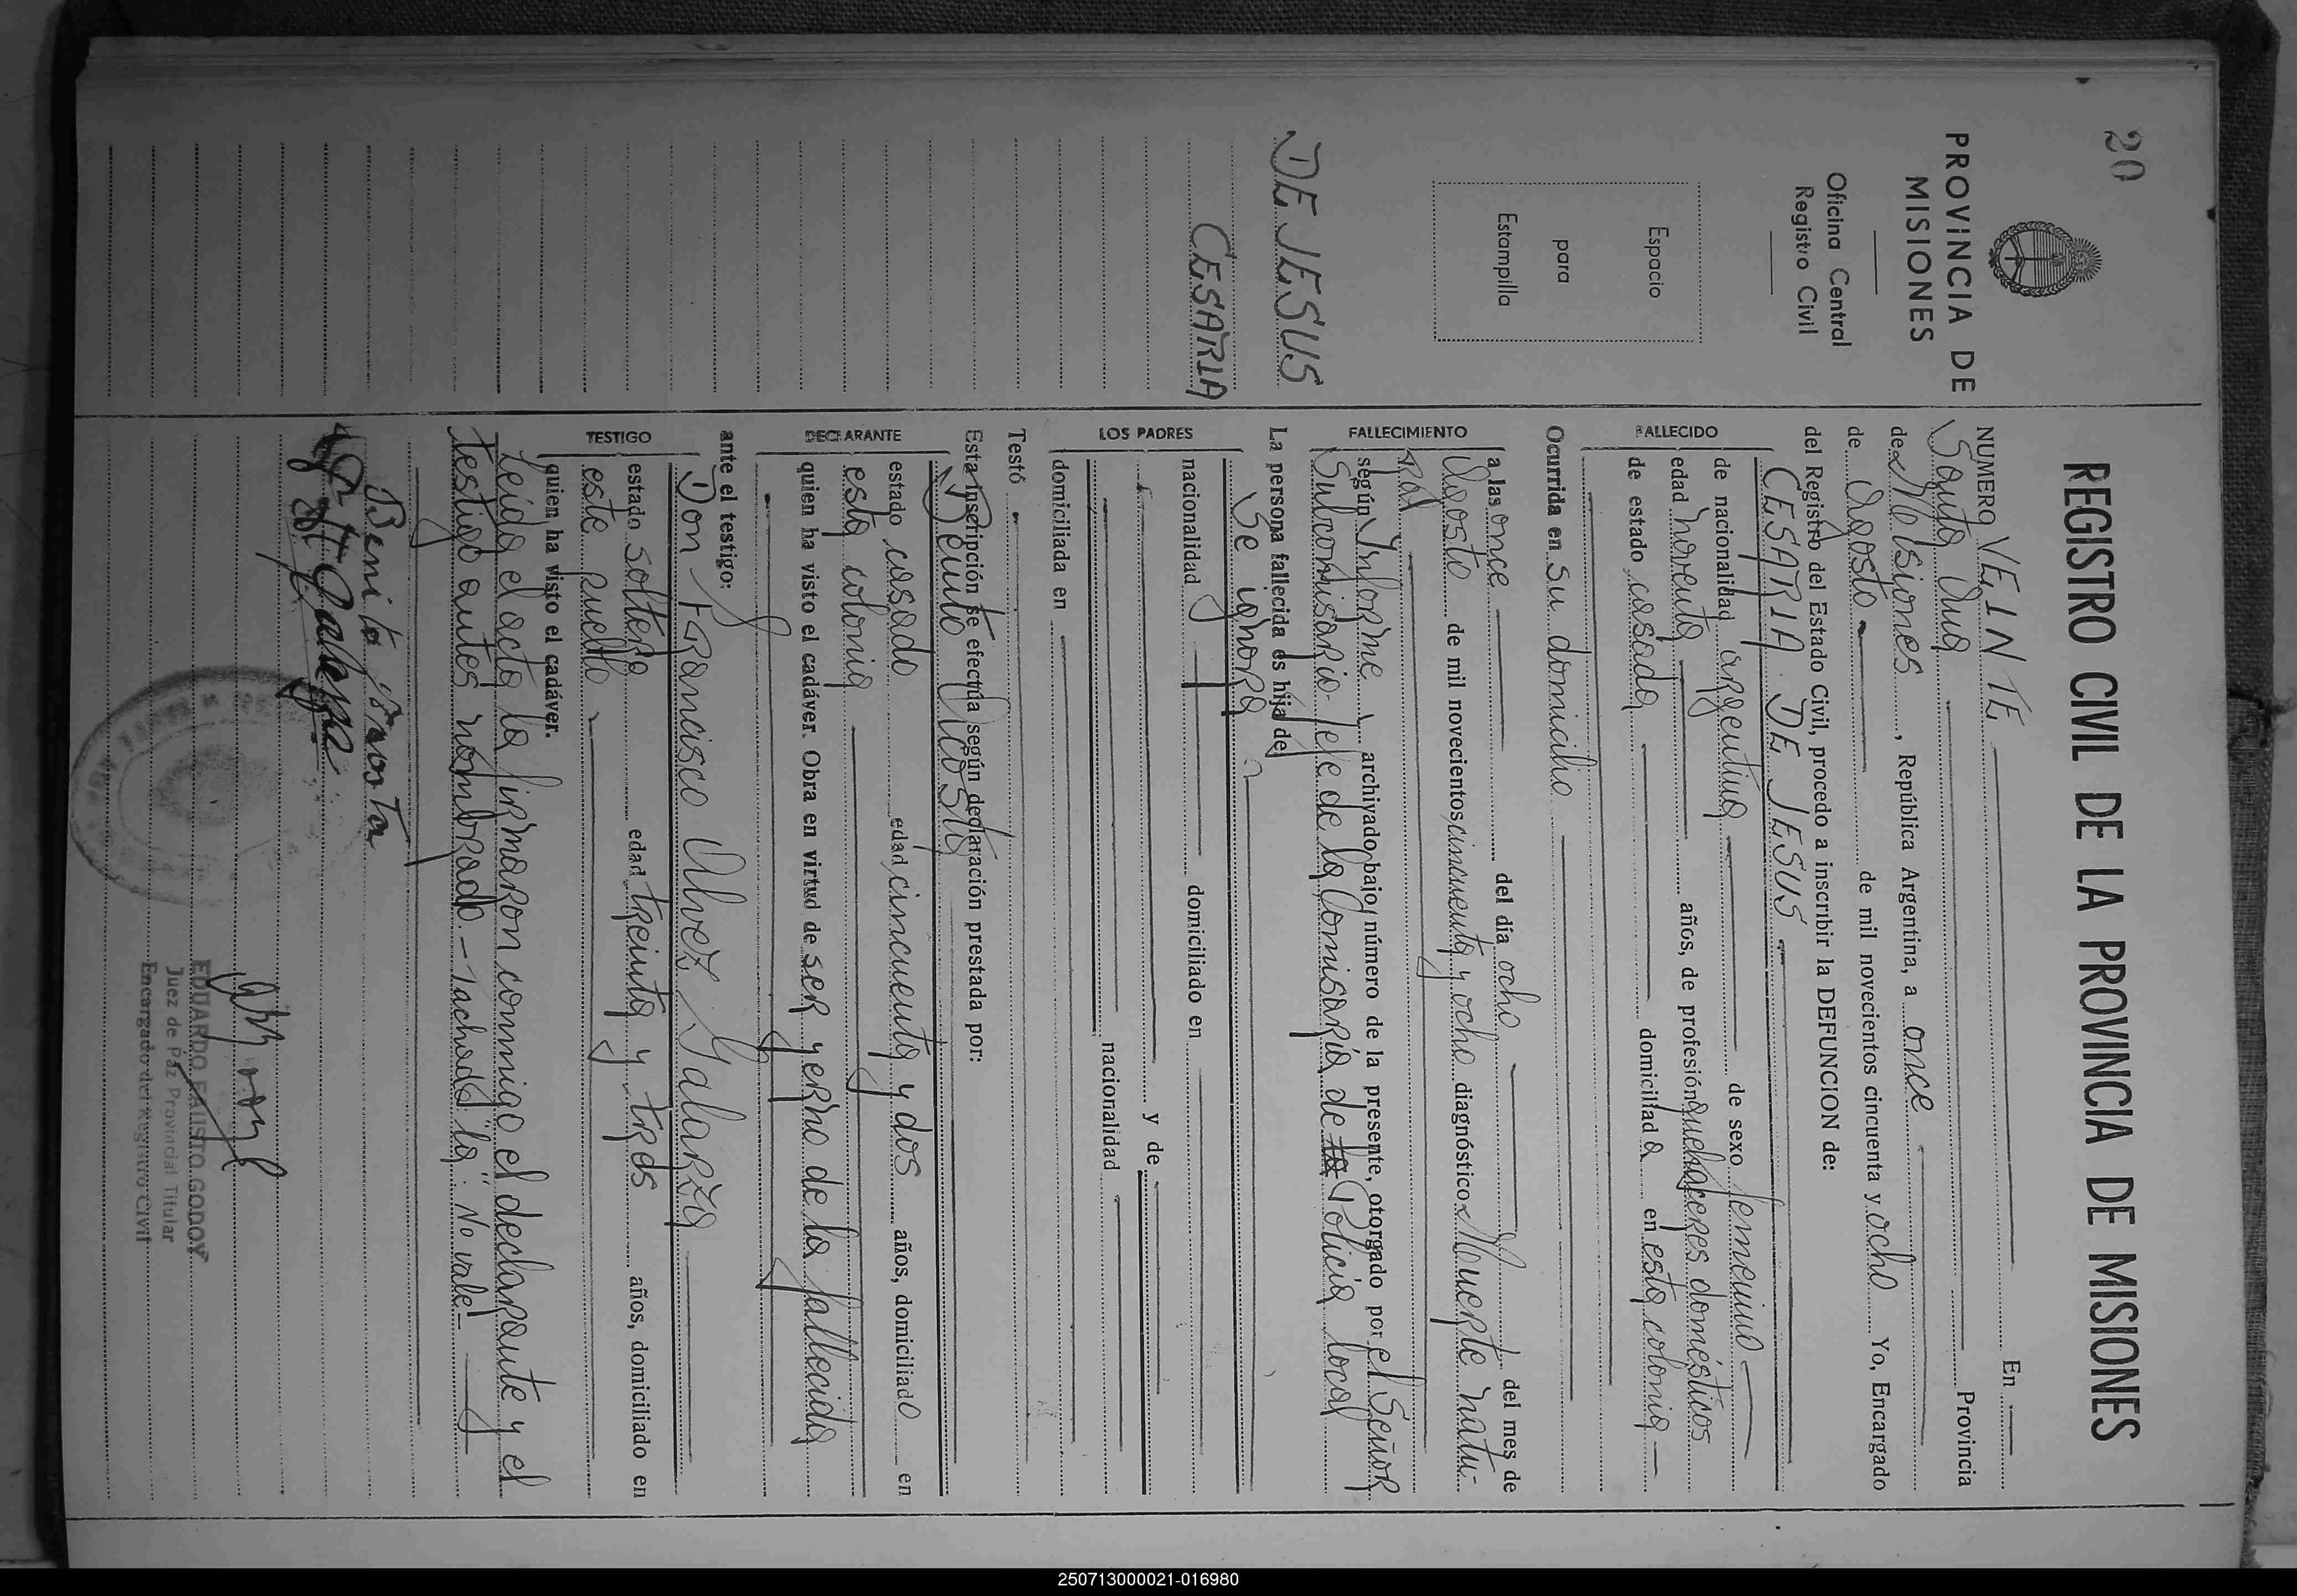 20
PROVINCIA DE
MISIONES
Oficina Central
Registro Civil
Espacio
para
Estampilla
DE JESUS
CESARIA
REGISTRO CIVIL DE LA PROVINCIA DE MISIONES
NUMERO VEINTE En
Santa Ana Provincia
de Misiones, República Argentina, a once
de Agosto de mil novecientos cincuenta y ocho Yo, Encargado
del Registro del Estado Civil, procedo a inscribir la DEFUNCION de:
FALLECIDO
CESARIA DE JESUS
de nacionalidad argentina de sexo femenino
edad noventa años, de profesión quehaceres domésticos
de estado casada domiciliada en esta colonia
Ocurrida en su domicilio
FALLECIMIENTO
a las once del día ocho del mes de
Agosto de mil novecientos cincuenta y ocho diagnóstico Muerte natu-
ral
según Informe archivado bajo número de la presente, otorgado por el Señor
Subcomisario Jefe de la Comisaría de la Policia local
La persona fallecida es hija de
LOS PADRES
Se ignora
nacionalidad domiciliado en
y de
nacionalidad
domiciliada en
Testó
Esta inscripción se efectúa según declaración prestada por:
DECLARANTE
Benito Acosta
estado casado edad cincuenta y dos años, domiciliado en
esta colonia
quien ha visto el cadáver. Obra en virtud de ser yerno de la fallecida
ante el testigo:
TESTIGO
Don Francisco Alvez Galarza
estado soltero edad treinta y tres años, domiciliado en
este pueblo
quien ha visto el cadáver.
Leida el acta la firmaron conmigo el declarante y el
testigo antes nombrado.- Tachada "la": No vale!-
Benito Acosta
EDUARDO FAUSTO GODOY
Juez de Paz Provincial Titular
Encargado del Registro Civil
250713000021-016980